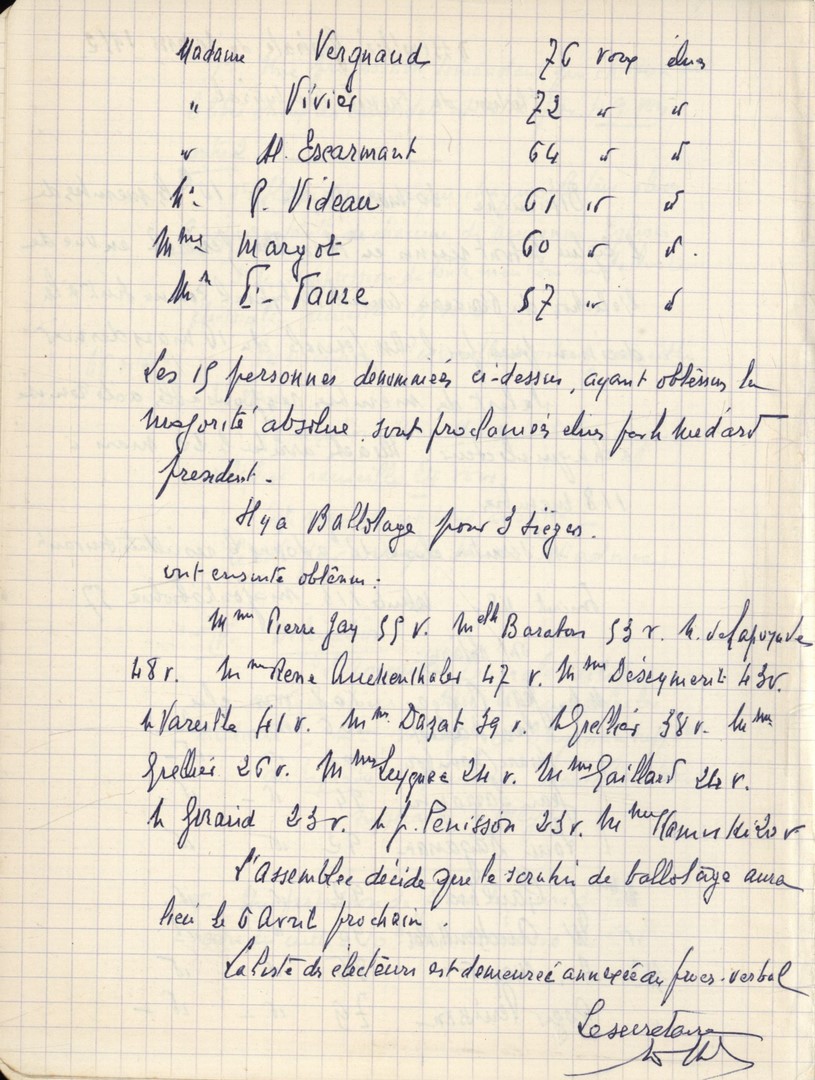 Madame Vergnaud 76 voix élues
" Vivier 72 " "
" H. Escarmant 64 " "
M. P. Videau 61 " "
Mme Margot 60 " " .
Mm E. Faure 57 " "
Les 15 personnes denommées ci-dessus, ayant obtenus la
majorité absolue, sont proclamées élues par M Médard
president.
Il y a Ballotage pour 3 sièges.
ont ensuite obtenu :
Mme Pierre Jay 55 v. Melle Baraton 53 v. M. de Lapoyade
48 v. Mme René Auckenthaler 47 v. Mme Deseymerit 43 v.
M Vareille 41 v. Mme Dazat 39 v. M Grellier 38 v. Mme
Grellier 26 v. Mme Leygnac 24 v. Mme Gaillard 24 v.
M Giraud 23 v. M J. Penisson 23 v. Mme Kaminski 20 v
L'assemblée décide que le scrutin de ballotage aura
lieu le 6 Avril prochain.
La liste des électeurs est demeurée annexée au proces-verbal
Le secretaire